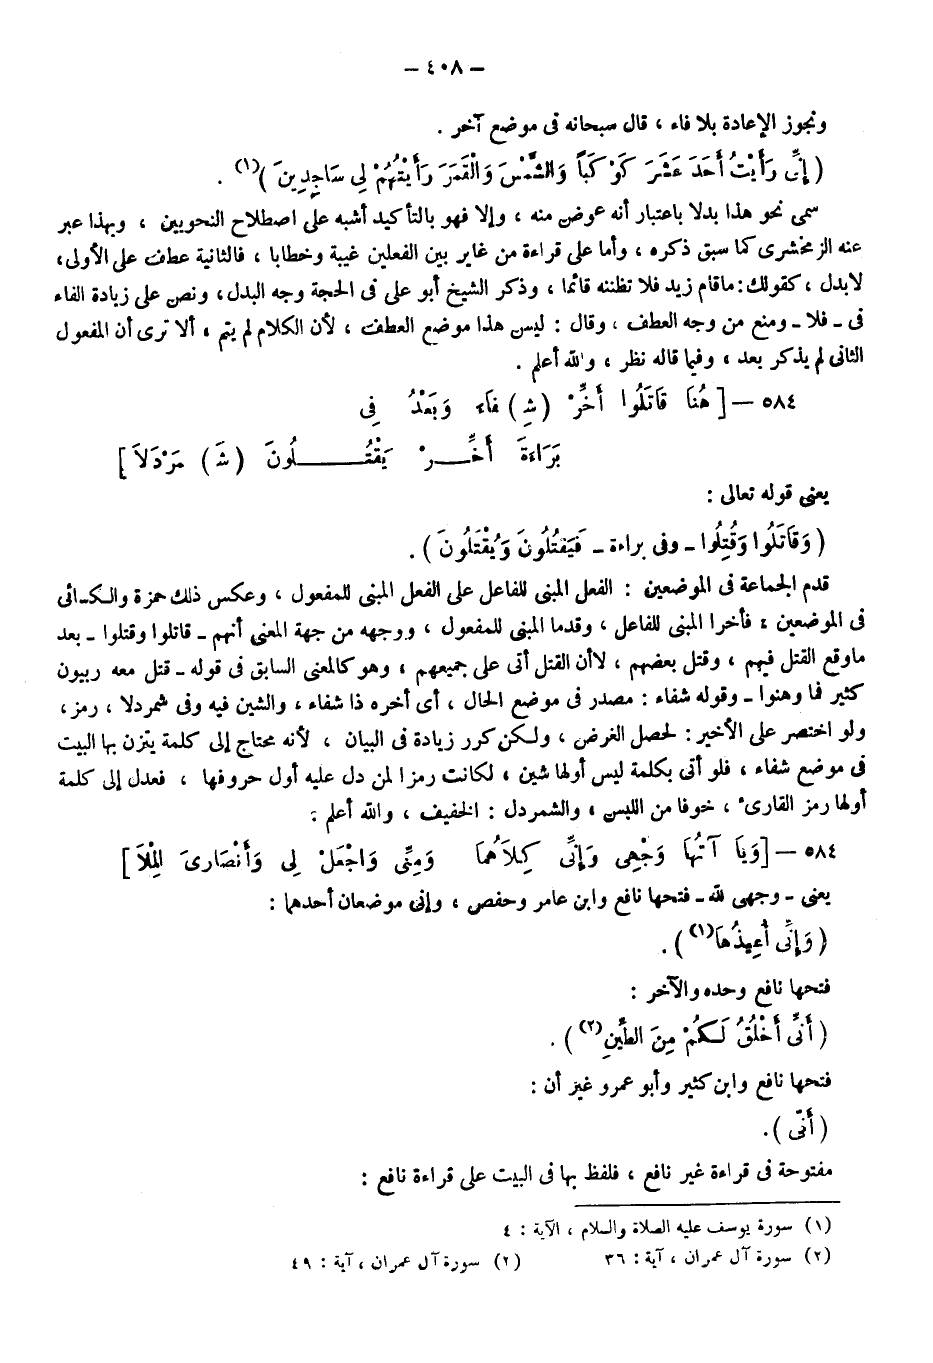 – ٤٠٨ –
ونجوز الإعادة بلا فاء ، قال سبحانه فى موضع آخر .
( إِنِّى رَأَيْتُ أَحَدَ عَشَرَ كَوْكَبًا وَالشَّمْسَ وَالْقَمَرَ رَأَيْتُهُمْ لِى سَاجِدِينَ )(١) .
سمى نحو هذا بدلا باعتبار أنه عوض منه ، وإلا فهو بالتأكيد أشبه على اصطلاح النحويين ، وبهذا عبر
عنه الزمخشرى كما سبق ذكره ، وأما على قراءة من غاير بين الفعلين غيبة وخطابا ، فالثانية عطف على الأولى،
لابدل ، كقولك: ماقام زيد فلا تظننه قائما ، وذكر الشيخ أبو على فى الحجة وجه البدل، ونص على زيادة الفاء
فى ـ فلا ـ ومنع من وجه العطف ، وقال : ليس هذا موضع العطف ، لأن الكلام لم يتم ، ألا ترى أن المفعول
الثانى لم يذكر بعد ، وفيما قاله نظر ، والله أعلم .
٥٨٤ – [ هُنَا قَاتَلُوا أَخِّرْ (شِ) فَاءَ وَبَعْدُ فِى
بَرَاءَةَ أَخِّـــرْ يَقْتُـــــلُونَ (شَ) مَرْدَلاَ ]
يعنى قوله تعالى :
( وَقَاتَلُوا وَقُتِلُوا ـ وفى براءة ـ فَيَقْتُلُونَ وَيُقْتَلُونَ ) .
قدم الجماعة فى الموضعين : الفعل المبنى للفاعل على الفعل المبنى للمفعول ، وعكس ذلك حمزة والكسائى
فى الموضعين ، فأخرا المبنى للفاعل ، وقدما المبنى للمفعول ، ووجهه من جهة المعنى أنهم ـ قاتلوا وقتلوا ـ بعد
ماوقع القتل فيهم ، وقتل بعضهم ، لاأن القتل أتى على جميعهم ، وهو كالمعنى السابق فى قوله ـ قتل معه ربيون
كثير فما وهنوا ـ وقوله شفاء : مصدر فى موضع الحال ، أى أخره ذا شفاء ، والشين فيه وفى شمردلا ، رمز ،
ولو اختصر على الأخير : لحصل الغرض ، ولكن كرر زيادة فى البيان ، لأنه محتاج إلى كلمة يتزن بها البيت
فى موضع شفاء ، فلو أتى بكلمة ليس أولها شين ، لكانت رمزا لمن دل عليه أول حروفها ، فعدل إلى كلمة
أولها رمز القارئ ، خوفا من اللبس ، والشمردل : الخفيف ، والله أعلم .
٥٨٤ – [وَيَا آتُهَا وَجْهِى وَإِنِّى كِلاَهُمَا وَمِنِّى وَاجْعَلْ لِى وَأَنْصَارِىَ الْمِلاَ ]
يعنى ـ وجهى لله ـ فتحها نافع وابن عامر وحفص ، وإنى موضعان أحدهما :
( وَإِنِّى أُعِيذُهَا(١) ) .
فتحها نافع وحده والآخر :
( أَنِّى أَخْلُقُ لَكُمْ مِنَ الطِّينِ(٢) ) .
فتحها نافع وابن كثير وأبو عمرو غير أن :
( أَنِّى ) .
مفتوحة فى قراءة غير نافع ، فلفظ بها فى البيت على قراءة نافع :
(١) سورة يوسف عليه الصلاة والسلام ، الآية : ٤
(٢) سورة آل عمران ، آية : ٣٦ (٢) سورة آل عمران ، آية : ٤٩